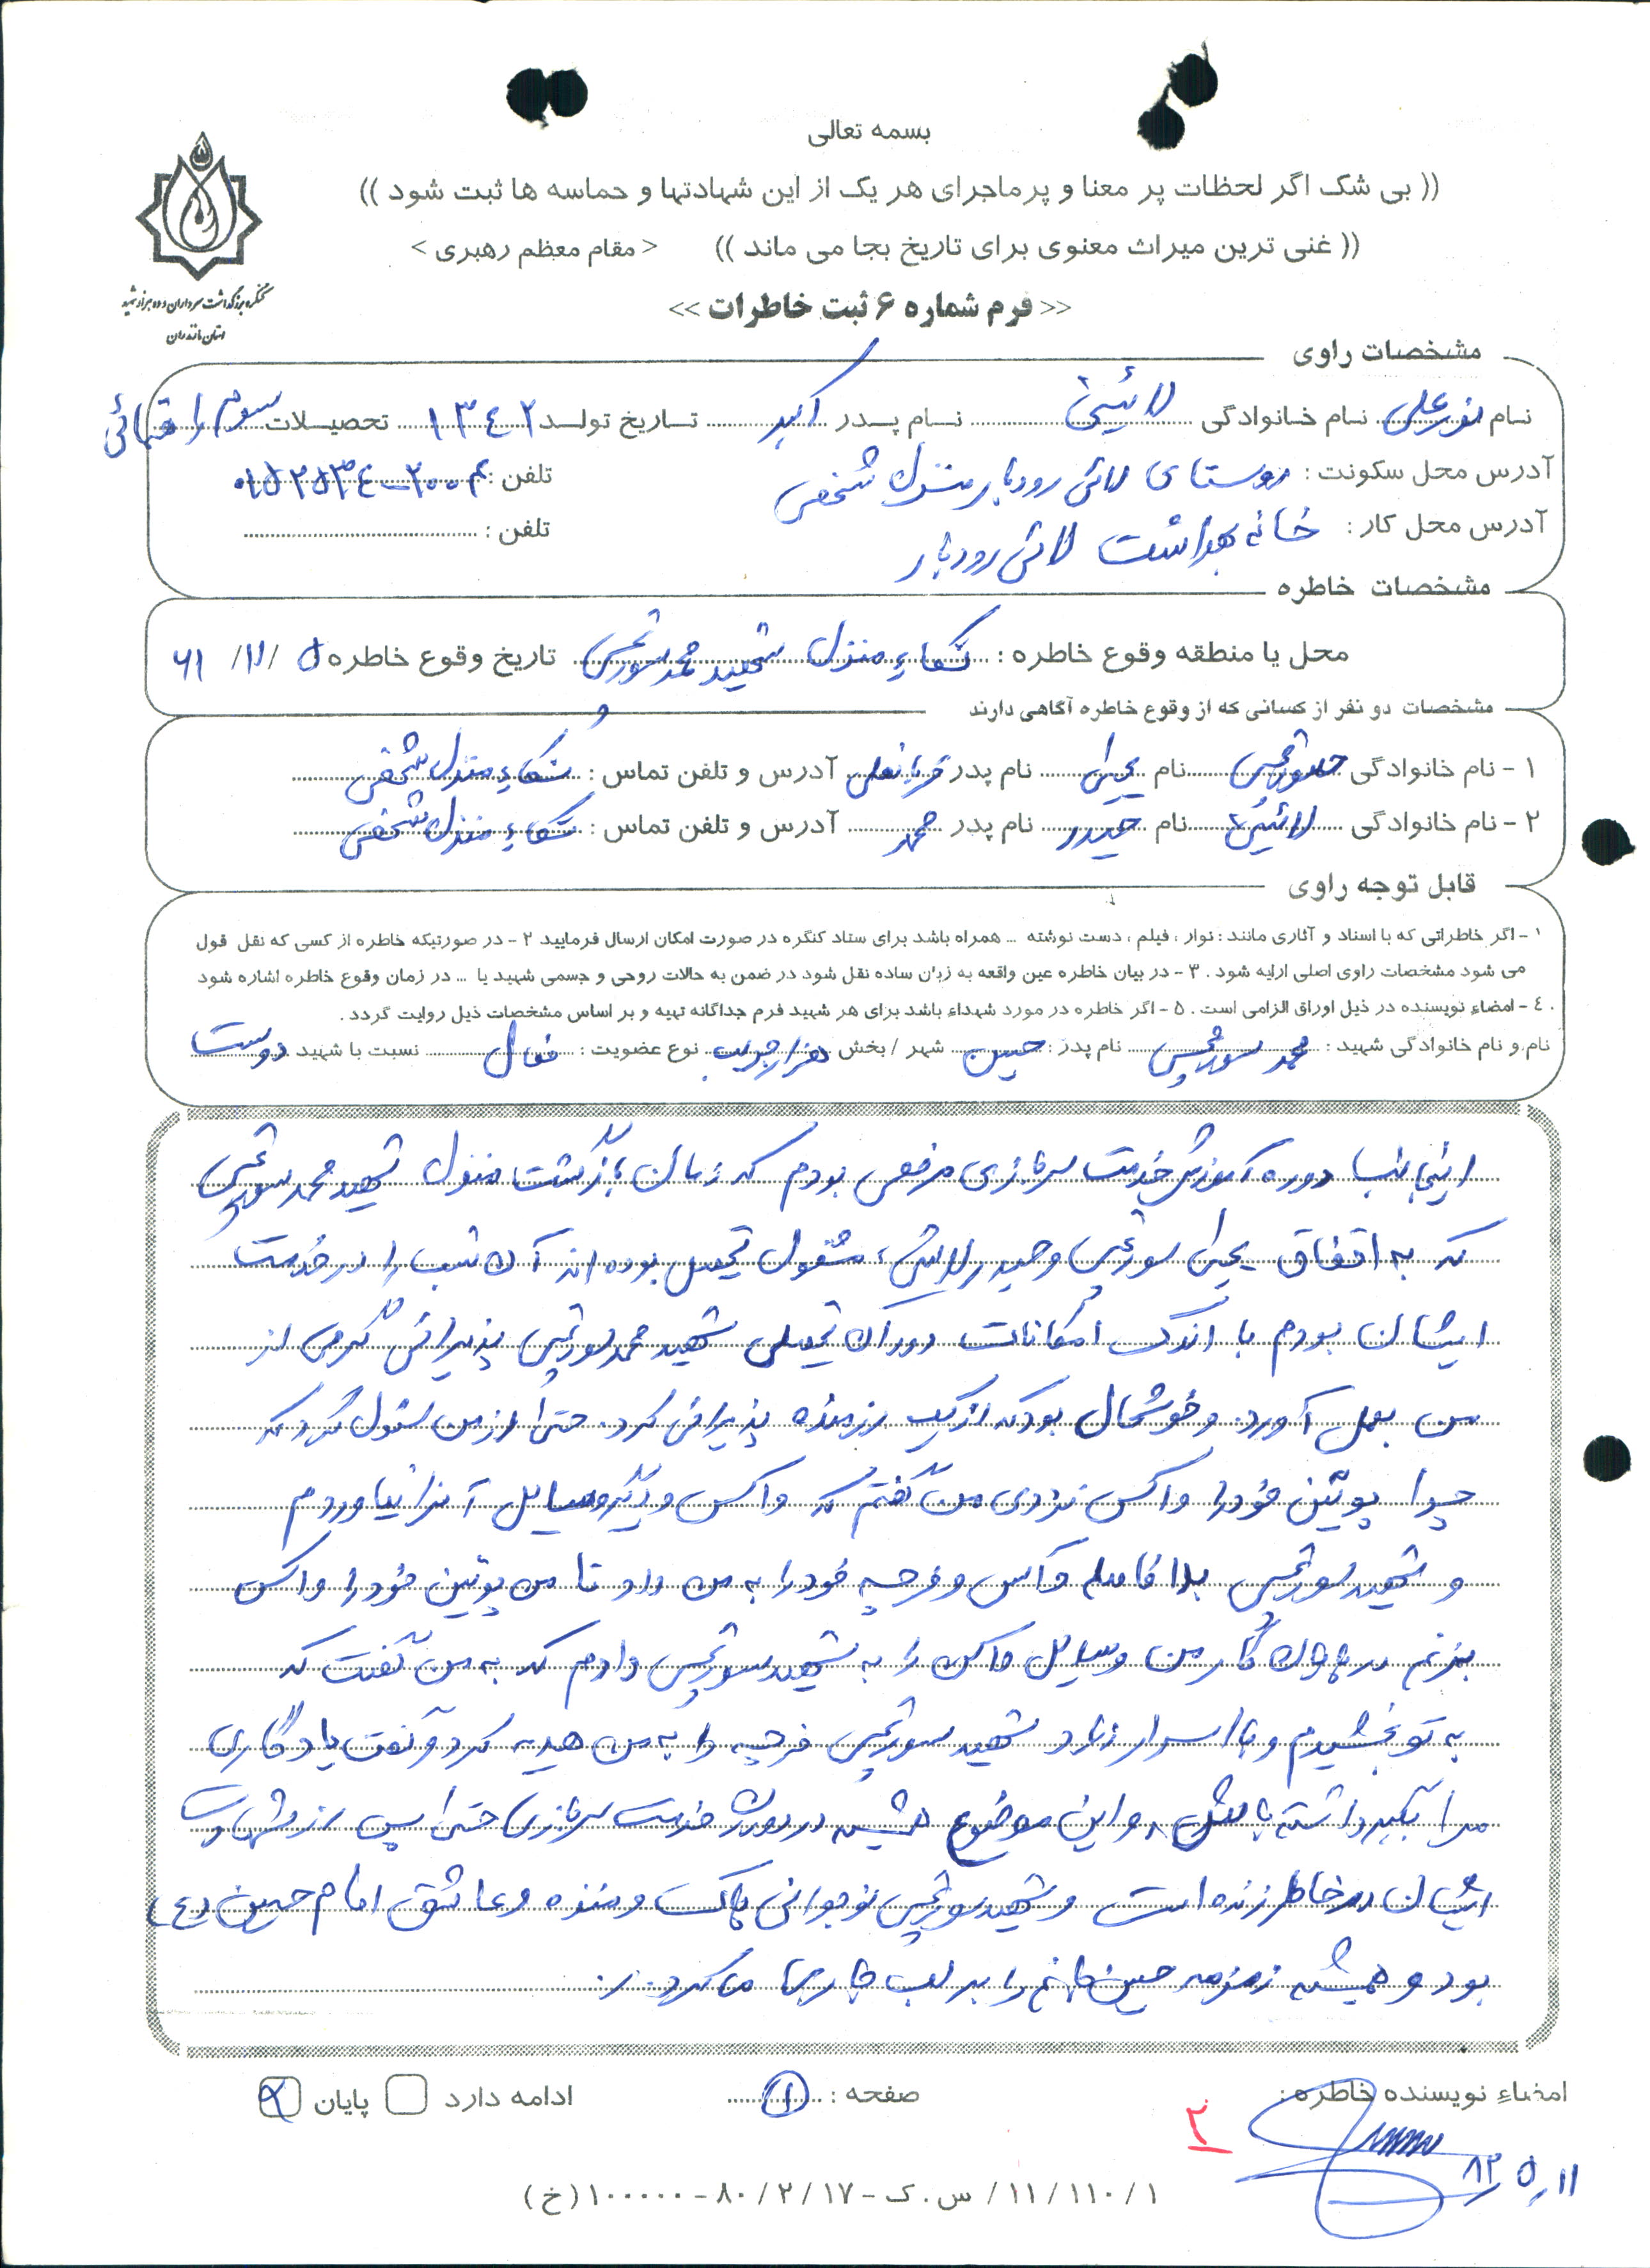 بسمه تعالی
(( بی شک اگر لحظات پر معنا و پر ماجرای هر یک از این شهادتها و حماسه ها ثبت شود ))
(( غنی ترین میراث معنوی برای تاریخ بجا می ماند )) < مقام معظم رهبری >
کنگره بزرگداشت سرداران و ده هزار شهید
استان مازندران
<< فرم شماره ۶ ثبت خاطرات >>
مشخصات راوی
نام نورعلی نام خانوادگی لائینی نام پدر اکبر تاریخ تولد ۱۳۴۲ تحصیلات سوم راهنمائی
آدرس محل سکونت : روستای لائی رودبار منزل شخصی تلفن :
آدرس محل کار : خانه بهداشت لائی رودبار تلفن :
مشخصات خاطره
محل یا منطقه وقوع خاطره : نکاء منزل شهید محمد سورتچی تاریخ وقوع خاطره ۵ / ۱۱/ ۶۱
مشخصات دو نفر از کسانی که از وقوع خاطره آگاهی دارند
۱ - نام خانوادگی سورتچی نام یحیی نام پدر قربانعلی آدرس و تلفن تماس : نکاء منزل شخصی
۲ - نام خانوادگی لائینی نام حیدر نام پدر محمد آدرس و تلفن تماس : نکاء منزل شخصی
قابل توجه راوی
۱ - اگر خاطراتی که با اسناد و آثاری مانند : نوار ، فیلم ، دست نوشته ... همراه باشد برای ستاد کنگره در صورت امکان ارسال فرمایید ۲ - در صورتیکه خاطره از کسی که نقل قول
می شود مشخصات راوی اصلی ارایه شود . ۳ - در بیان خاطره عین واقعه به زبان ساده نقل شود در ضمن به حالات روحی و جسمی شهید یا ... در زمان وقوع خاطره اشاره شود
. ٤ - امضاء نویسنده در ذیل اوراق الزامی است . ۵ - اگر خاطره در مورد شهداء باشد برای هر شهید فرم جداگانه تهیه و بر اساس مشخصات ذیل روایت گردد .
نام و نام خانوادگی شهید : محمد سورتچی نام پدر : حسین شهر / بخش هزارجریب نوع عضویت : فعال نسبت با شهید دوست
اینجانب دوره آموزش خدمت سربازی مرخصی بودم که زمان بازگشت منزل شهید محمد سورتچی
که به اتفاق یحیی سورتچی و حیدر لائینی مشغول تحصیل بوده اند آن شب را در خدمت
ایشان بودم با اندک امکانات دوران تحصیلی شهید محمد سورتچی پذیرائی گرمی از
من بعمل آورد. و خوشحال بود که از یک رزمنده پذیرائی کرد. حتی از من سئول کرد که
چرا پوتین خود را واکس نزدی من گفتم که واکس و دیگر وسایل آنرا نیاوردم
و شهید سورتچی بلا فاصله واکس و فرچه خود را به من داد تا من پوتین خود را واکس
بزنم در پایان کار من وسایل واکس را به شهید سورتچی دادم که به من گفت که
به تو بخشیدم و با اسرار زیاد شهید سورتچی فرچه را به من هدیه کرد و گفت یادگاری
مرا بگیر داشته باش. و این موضوع همیشه در دوران خدمت سربازی حتی پس از شهادت
ایشان در خاطر زنده است و شهید سورتچی نوجوانی پاک و منزه و عاشق امام حسین (ع)
بود و همیشه زمزمه حسین جانم را بر لب جاری می کرد.
امضاء نویسنده خاطره : صفحه : ۱ ادامه دارد پایان
۲
۸۲ ٫ ۵ ٫ ۱۱
۱ / ۱۱۰ / ۱۱ / س . ک - ۸۰ / ۲ / ۱۷ - ۱۰۰۰۰۰ ( خ )